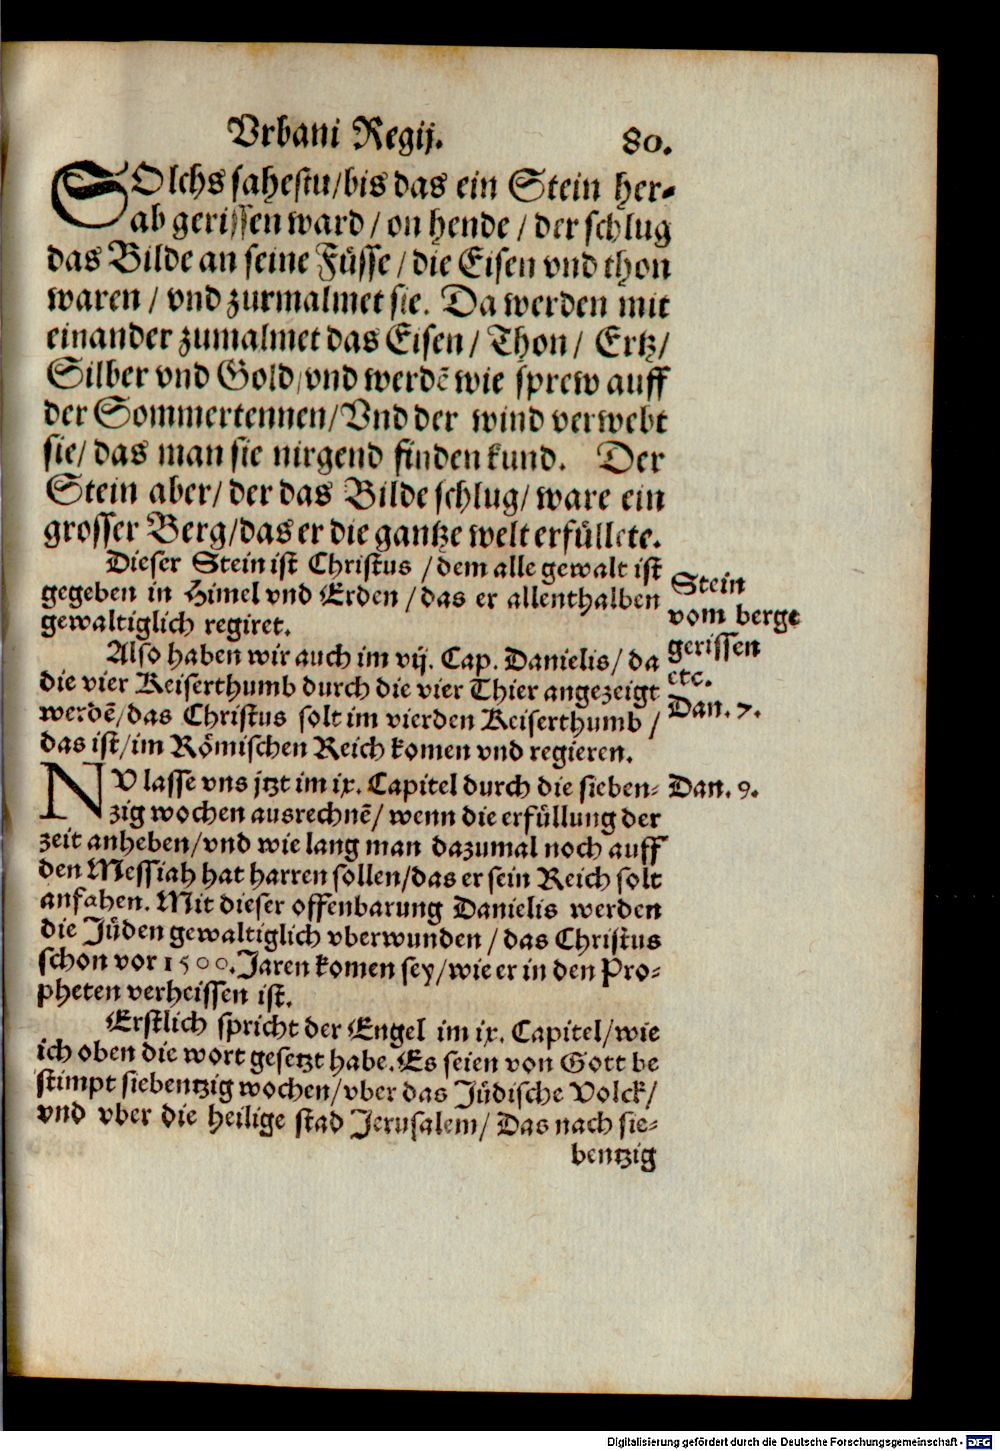 Vrbani Regij. 80.
SOlchs sahestu/bis das ein Stein her-
ab gerissen ward / on hende / der schlug
das Bilde an seine Füsse / die Eisen vnd thon
waren / vnd zurmalmet sie. Da werden mit
einander zumalmet das Eisen / Thon / Ertz/
Silber vnd Gold/vnd werdē wie sprew auff
der Sommertennen/Vnd der wind verwebt
sie/ das man sie nirgend finden kund. Der
Stein aber/ der das Bilde schlug/ ware ein
grosser Berg/das er die gantze welt erfüllete.
Dieser Stein ist Christus / dem alle gewalt ist
gegeben in Himel vnd Erden / das er allenthalben
gewaltiglich regiret.
Stein
vom berge
gerissen
etc.
Also haben wir auch im vij. Cap. Danielis/ da
die vier Keiserthumb durch die vier Thier angezeigt
werdē/das Christus solt im vierden Keiserthumb /
das ist/im Römischen Reich komen vnd regieren.
Dan. 7.
NV lasse vns jtzt im ix. Capitel durch die sieben-
zig wochen ausrechnē/ wenn die erfüllung der
zeit anheben/vnd wie lang man dazumal noch auff
den Messiah hat harren sollen/das er sein Reich solt
anfahen. Mit dieser offenbarung Danielis werden
die Jüden gewaltiglich vberwunden / das Christus
schon vor 1500. Jaren komen sey/wie er in den Pro-
pheten verheissen ist.
Dan. 9.
Erstlich spricht der Engel im ix. Capitel/wie
ich oben die wort gesetzt habe. Es seien von Gott be
stimpt siebentzig wochen/vber das Jüdische Volck/
vnd vber die heilige stad Jerusalem/ Das nach sie-
bentzig
Digitalisierung gefördert durch die Deutsche Forschungsgemeinschaft - DFG